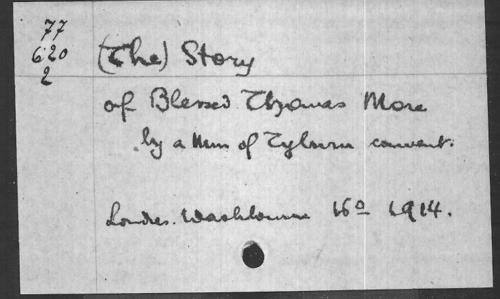 77
620
2
(The) Story
of Blessed Thomas More
by a Nun of Tyburn convent.
Londres. Washbourne 16º 1914.